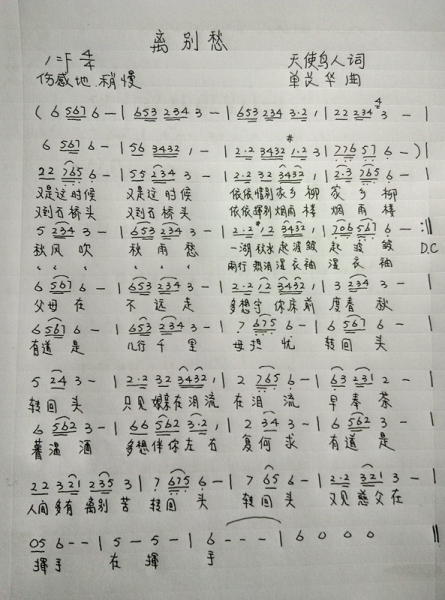 离别愁
1=F 4/4 天使鸟人词
伤感地.稍慢 单苡华曲
( 6 567 6 - | 653 234 3 - | 653 234 3·2 1 | 22 234 3 - |
6 567 6 - | 56 3432 1 - | 2·2 3432 1·2 3 | 776 57 6 - ) |
22 765 6 - | 55 234 3 - | 2·2 32 3432 1 | 2·3 765 6 - |
又是这时候 又是这时候 依依惜别家乡柳 家乡柳
又到石桥头 又到石桥头 依依挥别烟雨楼 烟雨楼
5 234 3 - | 653 234 3 - | 2·2 12 3432 1 | 706 567 6 - :||
秋风吹 秋雨愁 一湖秋水起波皱 起波皱 D.C
雨行热泪湿衣袖 湿衣袖
6 567 6 - | 653 234 3 - | 2·2 12 3432 1 | 3 234 3 - |
父母在 不远走 多想守你床前 度春秋
6 567 6 - | 653 234 3 - | 7 675 6 - | 6 567 6 - |
有道是 几行千里 母担忧 转回头
5 24 3 - | 2·2 32 3432 1 | 2 765 6 - | 63 231 2 - |
转回头 只见娘亲在泪流 在泪流 早奉茶
6 562 3 - | 66 562 3·2 1 | 2 34 3 - | 6 562 3 - |
暮温酒 多想伴你左右 复何求 有道是
22 321 235 3 | 7 675 6 - | 7 65 6 - | 2·2 321 3 - |
人间多有离别苦 转回头 转回头 又见慈父在
05 6 - - | 5 - 5 - | 6 - - - | 6 0 0 0 ||
挥手 在挥手